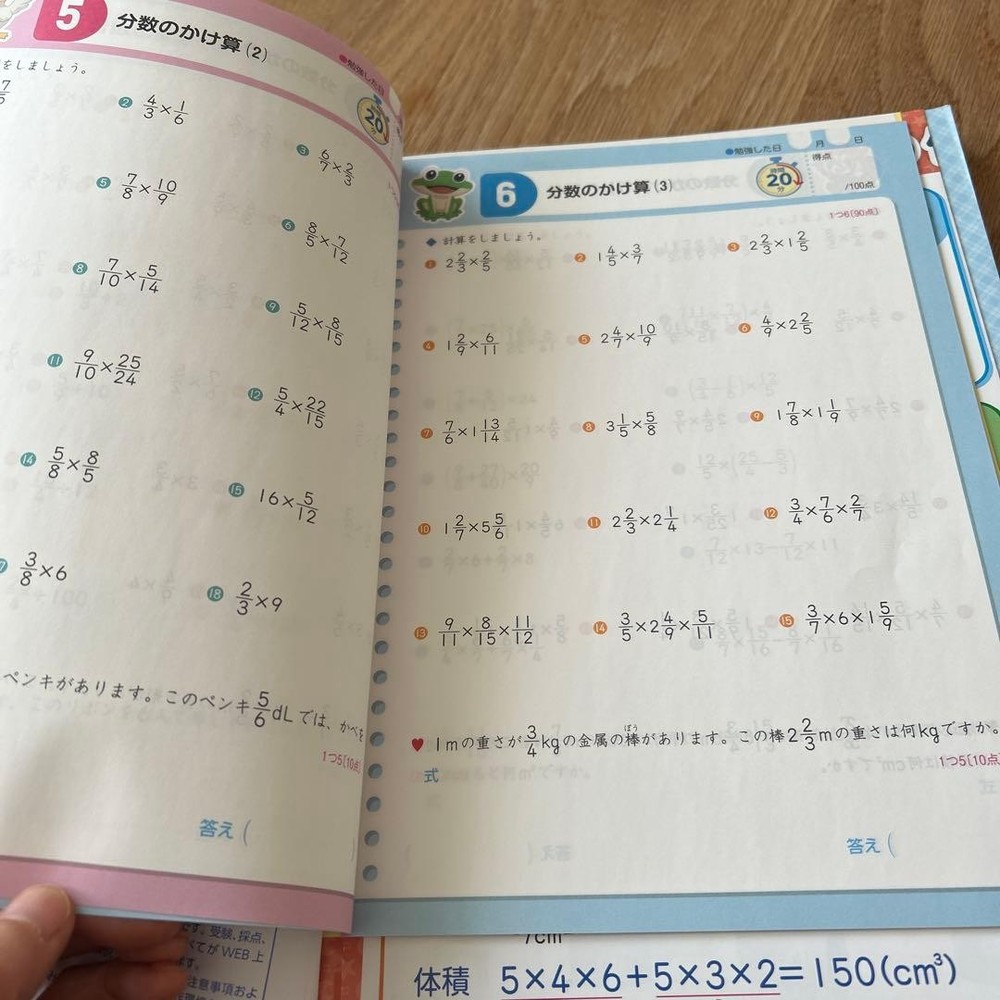 5 分数のかけ算(2)
●勉強した日
をしましょう。
20
7/5
② 4/3×1/6
③ 6/7×2/3
⑤ 7/8×10/9
⑥ 8/5×7/12
⑧ 7/10×5/14
⑨ 5/12×8/15
⑪ 9/10×25/24
⑫ 5/4×22/15
⑭ 5/8×8/5
⑮ 16×5/12
3/8×6
⑱ 2/3×9
ペンキがあります。このペンキ5/6dLでは、かべを
1つ5〔10点
答え(
●勉強した日 月 日
6 分数のかけ算(3)
時間 20 分
得点
/100点
1つ6〔90点〕
◆ 計算をしましょう。
① 2 2/3×2/5
② 1 4/5×3/7
③ 2 2/3×1 2/5
④ 1 2/9×6/11
⑤ 2 4/7×10/9
⑥ 4/9×2 2/5
⑦ 7/6×1 13/14
⑧ 3 1/5×5/8
⑨ 1 7/8×1 1/9
⑩ 1 2/7×5 5/6
⑪ 2 2/3×2 1/4
⑫ 3/4×7/6×2/7
⑬ 9/11×8/15×11/12
⑭ 3/5×2 4/9×5/11
⑮ 3/7×6×1 5/9
♥ 1mの重さが3/4kgの金属の棒があります。この棒2 2/3mの重さは何kgですか。
ぼう
1つ5〔10点
式
答え(
す。受験、採点、
てがWEB上
ます。
注意事項およ
/cm
体積 5×4×6+5×3×2=150(cm³)